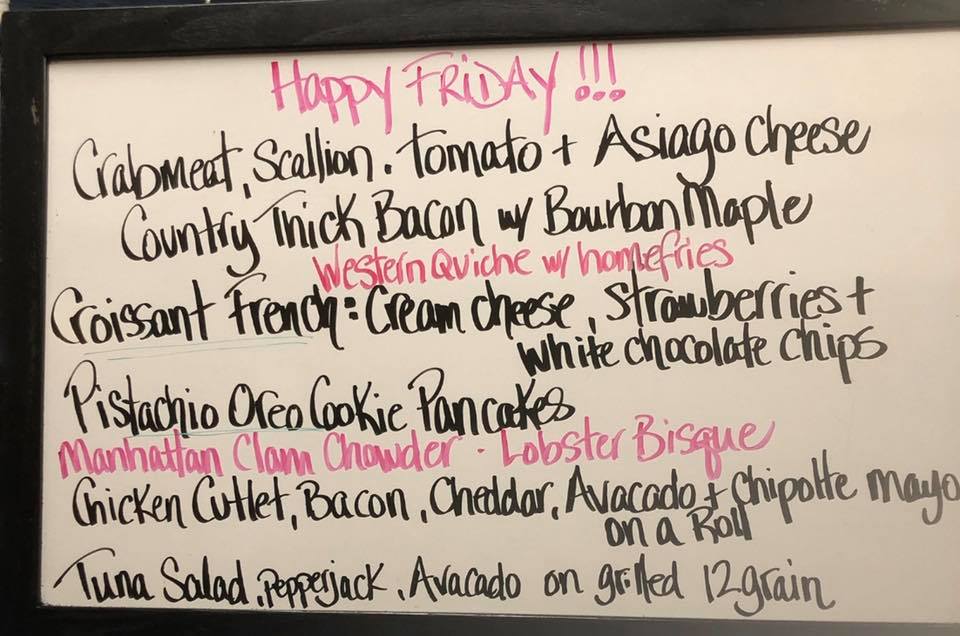 Happy FRiDAY !!!
Crabmeat, Scallion. Tomato + Asiago Cheese
Country Thick Bacon w/ Bourbon Maple
Western Quiche w/ homefries
Croissant French: Cream cheese, Strawberries +
white chocolate chips
Pistachio Oreo Cookie Pancakes
Manhattan Clam Chowder - Lobster Bisque
Chicken Cutlet, Bacon, Cheddar, Avacado + Chipotte mayo
on a Roll
Tuna Salad, pepperjack, Avacado on grilled 12grain